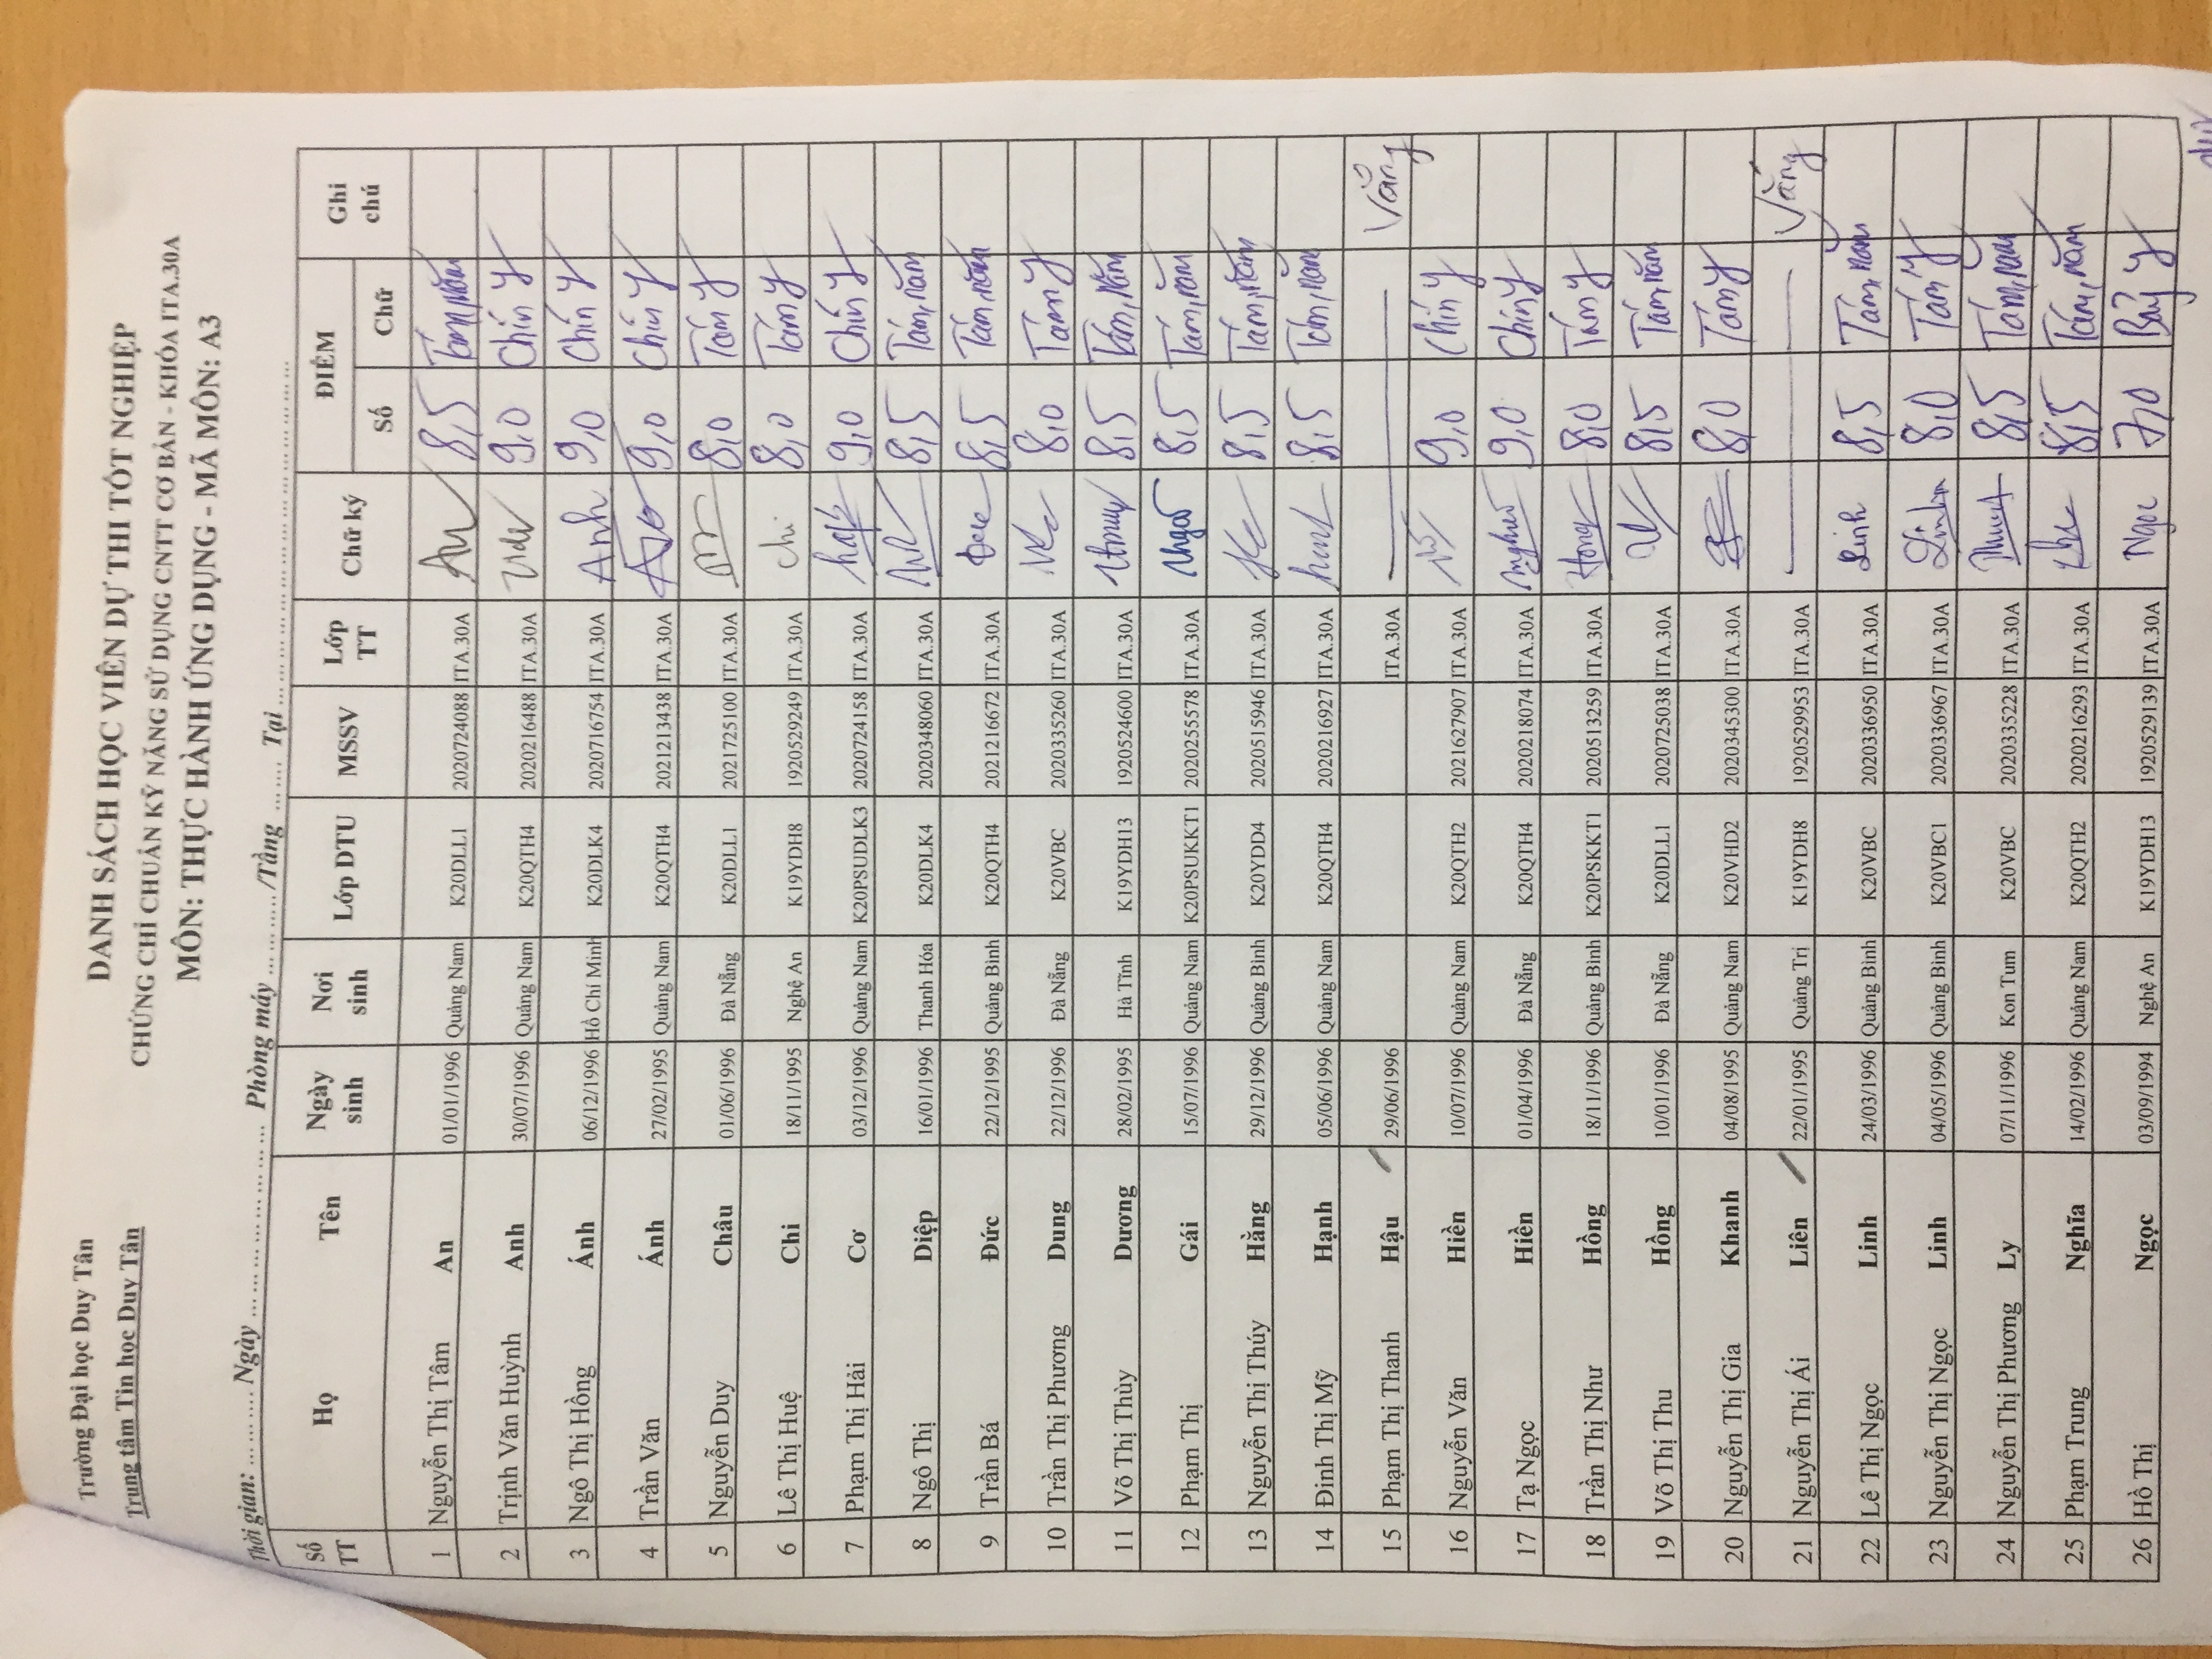 Trường Đại học Duy Tân
Trung tâm Tin học Duy Tân
DANH SÁCH HỌC VIÊN DỰ THI TỐT NGHIỆP
CHỨNG CHỈ CHUẨN KỸ NĂNG SỬ DỤNG CNTT CƠ BẢN - KHÓA ITA.30A
MÔN: THỰC HÀNH ỨNG DỤNG - MÃ MÔN: A3
Thời gian: ............ Ngày ........................ Phòng máy ............/Tầng ...... Tại ........................
Số TT Họ Tên Ngày sinh Nơi sinh Lớp DTU MSSV Lớp TT Chữ ký ĐIỂM Số Chữ Ghi chú
1 Nguyễn Thị Tâm An 01/01/1996 Quảng Nam K20DLL1 2020724088 ITA.30A An 8,5 Tám, năm
2 Trịnh Văn Huỳnh Anh 30/07/1996 Quảng Nam K20QTH4 2020216488 ITA.30A 9,0 Chín y
3 Ngô Thị Hồng Ánh 06/12/1996 Hồ Chí Minh K20DLK4 2020716754 ITA.30A Anh 9,0 Chín y
4 Trần Văn Ánh 27/02/1995 Quảng Nam K20QTH4 2021213438 ITA.30A 9,0 Chín y
5 Nguyễn Duy Châu 01/06/1996 Đà Nẵng K20DLL1 2021725100 ITA.30A 8,0 Tám y
6 Lê Thị Huệ Chi 18/11/1995 Nghệ An K19YDH8 1920529249 ITA.30A Chi 8,0 Tám y
7 Phạm Thị Hải Cơ 03/12/1996 Quảng Nam K20PSUDLK3 2020724158 ITA.30A 9,0 Chín y
8 Ngô Thị Diệp 16/01/1996 Thanh Hóa K20DLK4 2020348060 ITA.30A 8,5 Tám, năm
9 Trần Bá Đức 22/12/1995 Quảng Bình K20QTH4 2021216672 ITA.30A 8,5 Tám, năm
10 Trần Thị Phương Dung 22/12/1996 Đà Nẵng K20VBC 2020335260 ITA.30A 8,0 Tám y
11 Võ Thị Thùy Dương 28/02/1995 Hà Tĩnh K19YDH13 1920524600 ITA.30A 8,5 Tám, năm
12 Phạm Thị Gái 15/07/1996 Quảng Nam K20PSUKKT1 2020255578 ITA.30A 8,5 Tám, năm
13 Nguyễn Thị Thúy Hằng 29/12/1996 Quảng Bình K20YDD4 2020515946 ITA.30A 8,5 Tám, năm
14 Đinh Thị Mỹ Hạnh 05/06/1996 Quảng Nam K20QTH4 2020216927 ITA.30A 8,5 Tám, năm
15 Phạm Thị Thanh Hậu 29/06/1996 ITA.30A Vắng
16 Nguyễn Văn Hiền 10/07/1996 Quảng Nam K20QTH2 2021627907 ITA.30A 9,0 Chín y
17 Tạ Ngọc Hiền 01/04/1996 Đà Nẵng K20QTH4 2020218074 ITA.30A 9,0 Chín y
18 Trần Thị Như Hồng 18/11/1996 Quảng Bình K20PSKKT1 2020513259 ITA.30A Hồng 8,0 Tám y
19 Võ Thị Thu Hồng 10/01/1996 Đà Nẵng K20DLL1 2020725038 ITA.30A 8,5 Tám năm
20 Nguyễn Thị Gia Khanh 04/08/1995 Quảng Nam K20VHD2 2020345300 ITA.30A 8,0 Tám y
21 Nguyễn Thị Ái Liên 22/01/1995 Quảng Trị K19YDH8 1920529953 ITA.30A Vắng
22 Lê Thị Ngọc Linh 24/03/1996 Quảng Bình K20VBC 2020336950 ITA.30A Linh 8,5 Tám, năm
23 Nguyễn Thị Ngọc Linh 04/05/1996 Quảng Bình K20VBC1 2020336967 ITA.30A Linh 8,0 Tám y
24 Nguyễn Thị Phương Ly 07/11/1996 Kon Tum K20VBC 2020335228 ITA.30A 8,5 Tám, năm
25 Phạm Trung Nghĩa 14/02/1996 Quảng Nam K20QTH2 2020216293 ITA.30A 8,5 Tám, năm
26 Hồ Thị Ngọc 03/09/1994 Nghệ An K19YDH13 1920529139 ITA.30A Ngọc 7,0 Bảy y